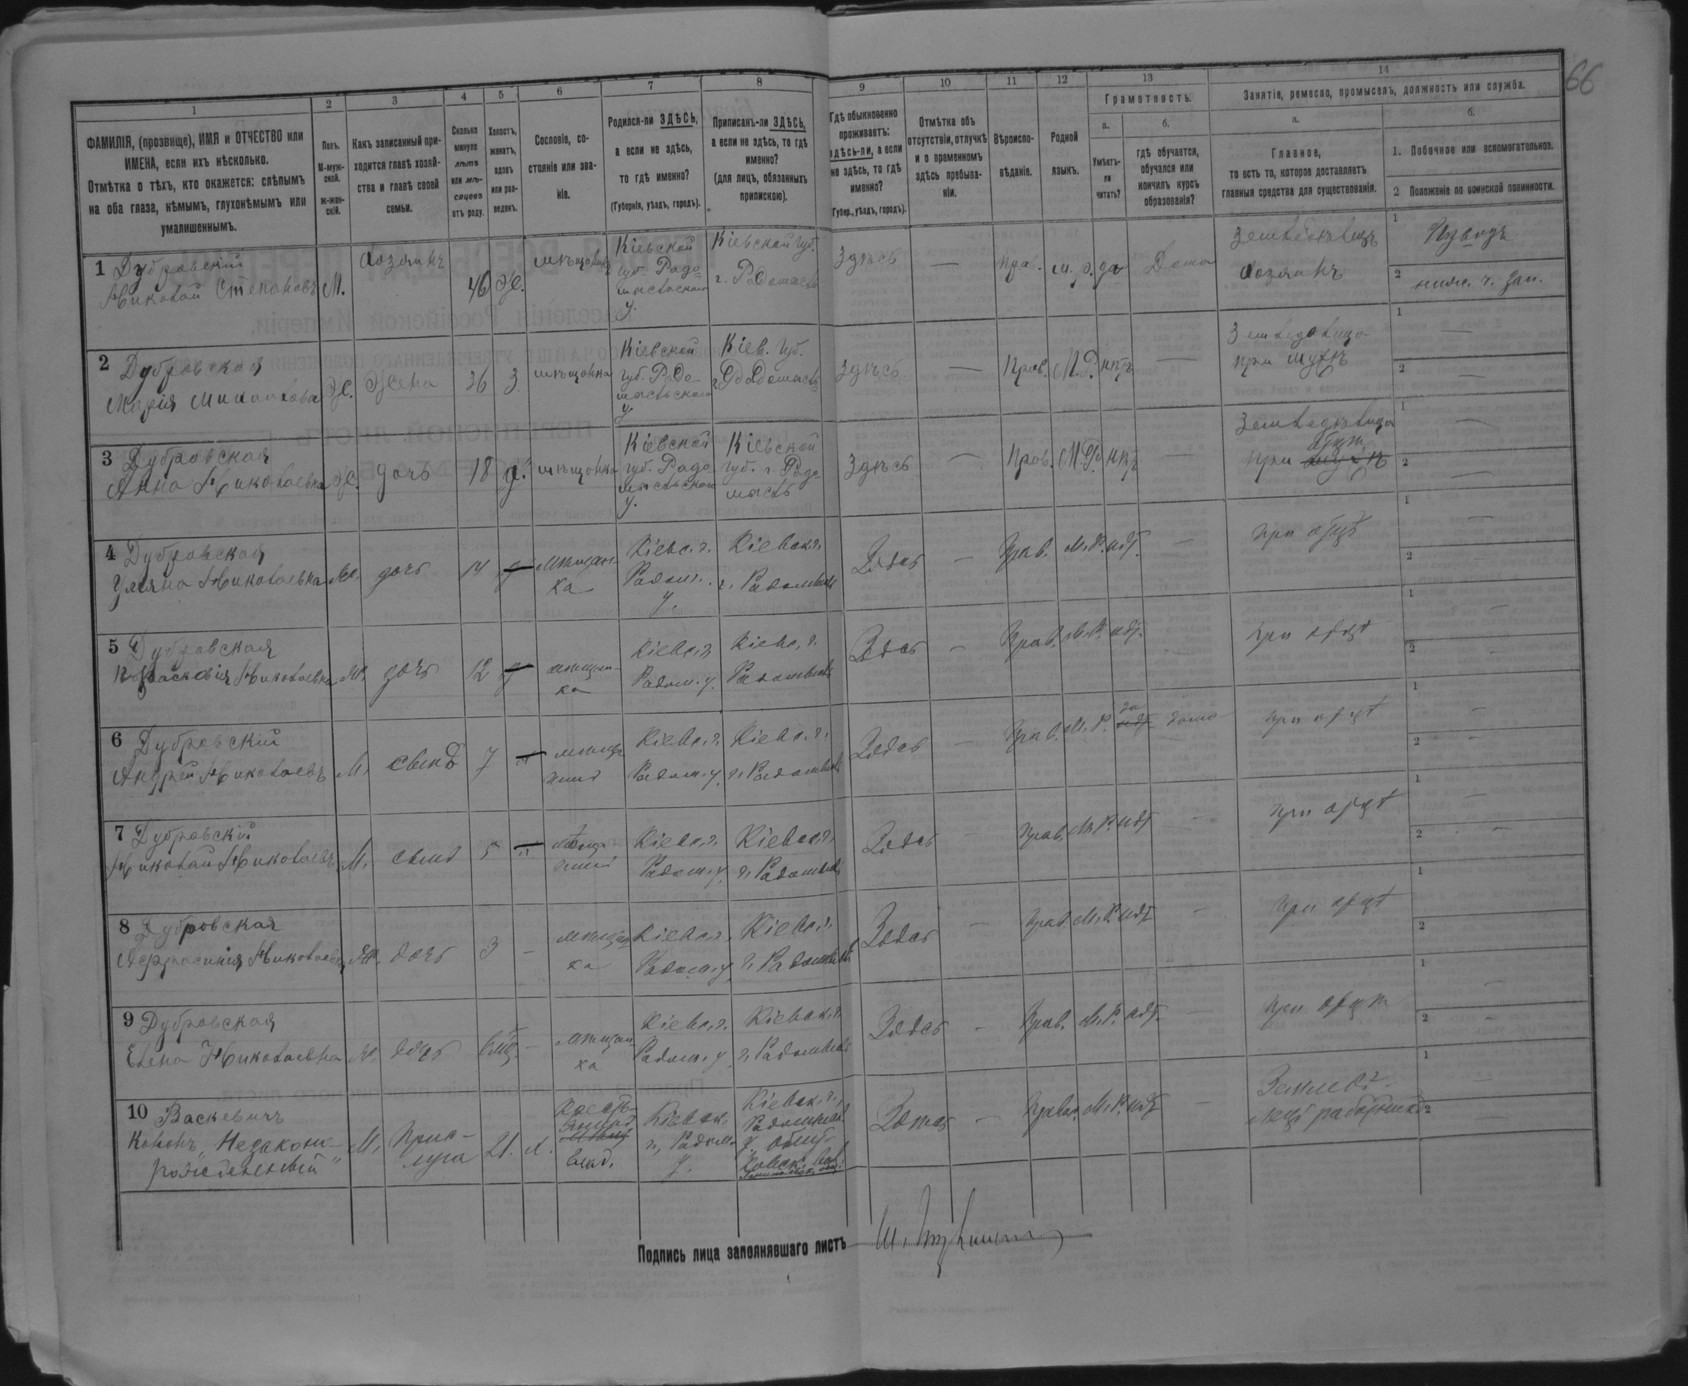 66
1
2
3
4
5
6
7
8
9
10
11
12
13
14
ФАМИЛІЯ, (прозвище), ИМЯ и ОТЧЕСТВО или
ИМЕНА, если ихъ нѣсколько.
Отмѣтка о тѣхъ, кто окажется: слѣпымъ
на оба глаза, нѣмымъ, глухонѣмымъ или
умалишеннымъ.
Полъ.
М-муж-
ской.
ж-жен-
скій.
Какъ записанный при-
ходится главѣ хозяй-
ства и главѣ своей
семьи.
Сколько
минуло
лѣтъ
или мѣ-
сяцевъ
отъ роду.
Холостъ,
женатъ,
вдовъ
или раз-
веденъ.
Сословіе, со-
стояніе или зва-
ніе.
Родился-ли ЗДѢСЬ,
а если не здѣсь,
то гдѣ именно?
(Губернія, уѣздъ, городъ).
Приписанъ-ли ЗДѢСЬ,
а если не здѣсь, то гдѣ
именно?
(для лицъ, обязанныхъ
припискою).
Гдѣ обыкновенно
проживаетъ:
здѣсь-ли, а если
не здѣсь, то гдѣ
именно?
(Губер., уѣздъ, городъ).
Отмѣтка объ
отсутствіи, отлучкѣ
и о временномъ
здѣсь пребыва-
ніи.
Вѣроиспо-
вѣданіе.
Родной
языкъ.
Грамотность.
а.
Умѣетъ-
ли
читать?
б.
гдѣ обучается,
обучался или
кончилъ курсъ
образованія?
Занятіе, ремесло, промыселъ, должность или служба.
а.
Главное,
то есть то, которое доставляетъ
главныя средства для существованія.
б.
1. Побочное или вспомогательное.
2 Положеніе по воинской повинности.
1 Дубровскій
Николай Степановъ М. хозяинъ 46 Ж. мѣщанинъ
Кіевской
губ. Радо
мысльской
у.
Кіевской губ.
г. Радомысль
Здѣсь — Прав. м. р. да Дома
Земледѣлецъ
хозяинъ
1 Извозъ
2
2 Дубровская
Марія Ж. Жена 36 З. мѣщанка
Кіевской
губ. Радо
мысльской
у.
Кіев. губ.
г. Радомысль
Здѣсь — Прав. М. Р. нѣтъ —
при мужѣ
1 —
2 —
3 Дубровская
Анна Николаевна Ж. дочь 18 д. мѣщанка
Кіевской
губ. Радо
мысльской
у.
Кіевской
губ. г. Радо
мысль
Здѣсь — Прав. М. Р. нѣтъ —
при
1 —
2 —
4 Дубровская
Ульяна Николаевна Ж. дочь 14 мѣщан-
ка
Кіевс. г.
Радом.
у.
Кіевск. г.
г. Радомысль
Здѣсь — Прав. М. Р. нѣт. —
при отцѣ
1 —
2 —
5 Дубровская
Парасковія Николаевна Ж. дочь 12 мѣщан-
ка
Кіевс. г.
Радом. у.
Кіевс. г.
Радомысль
Здѣсь — Прав. М. Р. нѣт. —
при отцѣ
1 —
2 —
6 Дубровскій
Андрей Николаевъ М. сынъ 7 мѣща
нинъ
Кіевс. г.
Радом. у.
Кіевс. г.
г. Радомысль
Здѣсь — Прав. М. Р. да дома
при отцѣ
1 —
2 —
7 Дубровскій
Николай Николаевъ М. сынъ 5
нинъ
Кіевс. г.
Радом. у.
Кіевск. г.
г. Радомысль
Здѣсь — Прав. М. Р. нѣт —
при отцѣ
1 —
2 —
8 Дубровская
Николаевна Ж. дочь 3 — мѣщан
ка
Кіевс. г.
Радом. у.
Кіевс. г.
г. Радомысль
Здѣсь — Прав. М. Р. нѣт —
при отцѣ
1
2
9 Дубровская
Елена Николаевна Ж. дочь — мѣщан
ка
Кіевс. г.
Радом. у
Кіевск. г.
г. Радомысль
Здѣсь — Прав. М. Р. нѣт. —
при отцѣ
1 —
2 —
10 Васкевичъ
„Незаконно-
рожденный“ М. Прис-
луга 21. х.
Кіевск.
г., Радом.
у.
Кіевск. г.,
Здѣсь — Прав. М. Р. нѣт —
1 —
2 —
Подпись лица заполнявшаго листъ